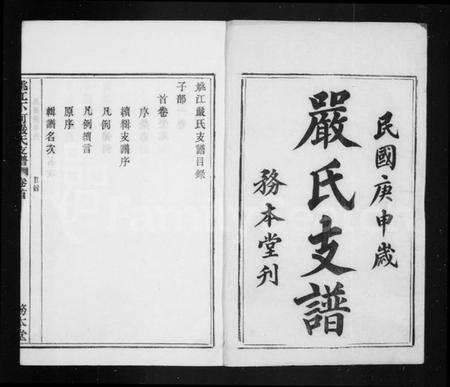 民國庚申歲
嚴氏支譜
務本堂刊
姚江嚴氏支譜目錄
子部
首卷
序
續輯支譜序
凡例續言
凡例
原序
輯譜名次
目錄
務本堂